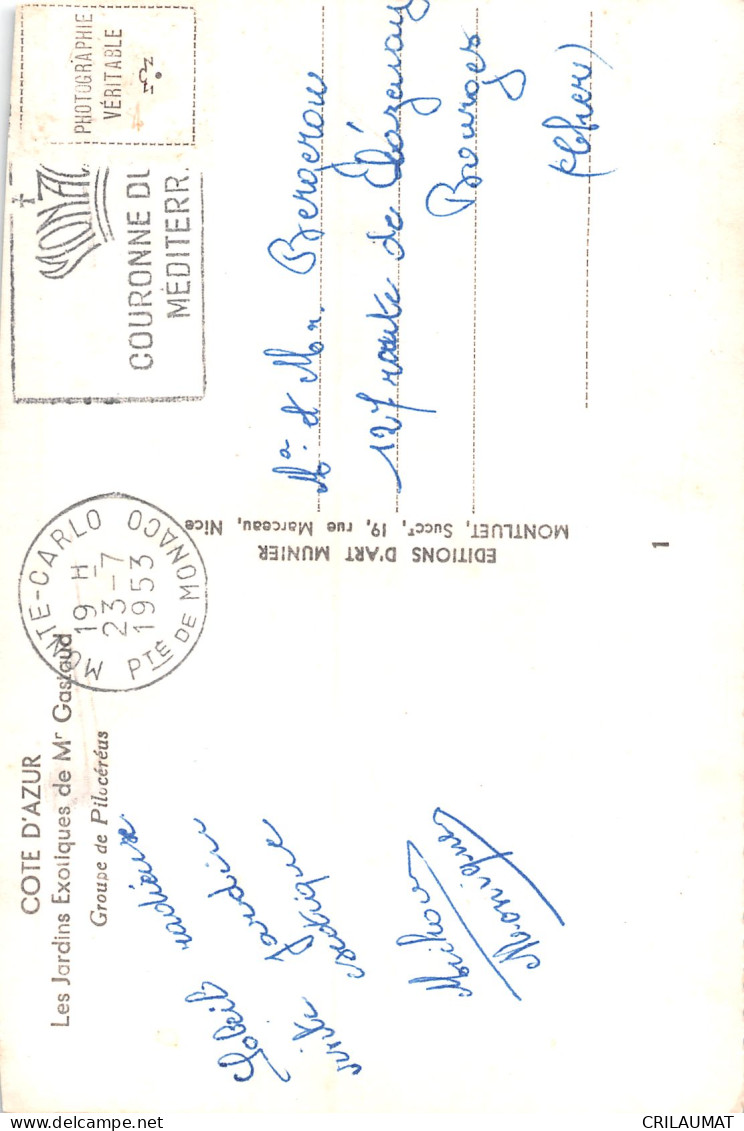 COTE D'AZUR
Les Jardins Exotiques de Mr Gastaud
Groupe de Pilocéréus
Soleil radieux
visite jardin
exotique
Monique
MONTE-CARLO
19 H
23-7
1953
PTÉ DE MONACO
COURONNE DU
MÉDITERR.
PHOTOGRAPHIE
VÉRITABLE
EDITIONS D'ART MUNIER
MONTLUET, Succr, 19, rue Marceau, Nice
1
Ma et Mr. Bergerou
127 route de
Bourges
(Cher)
CRILAUMAT